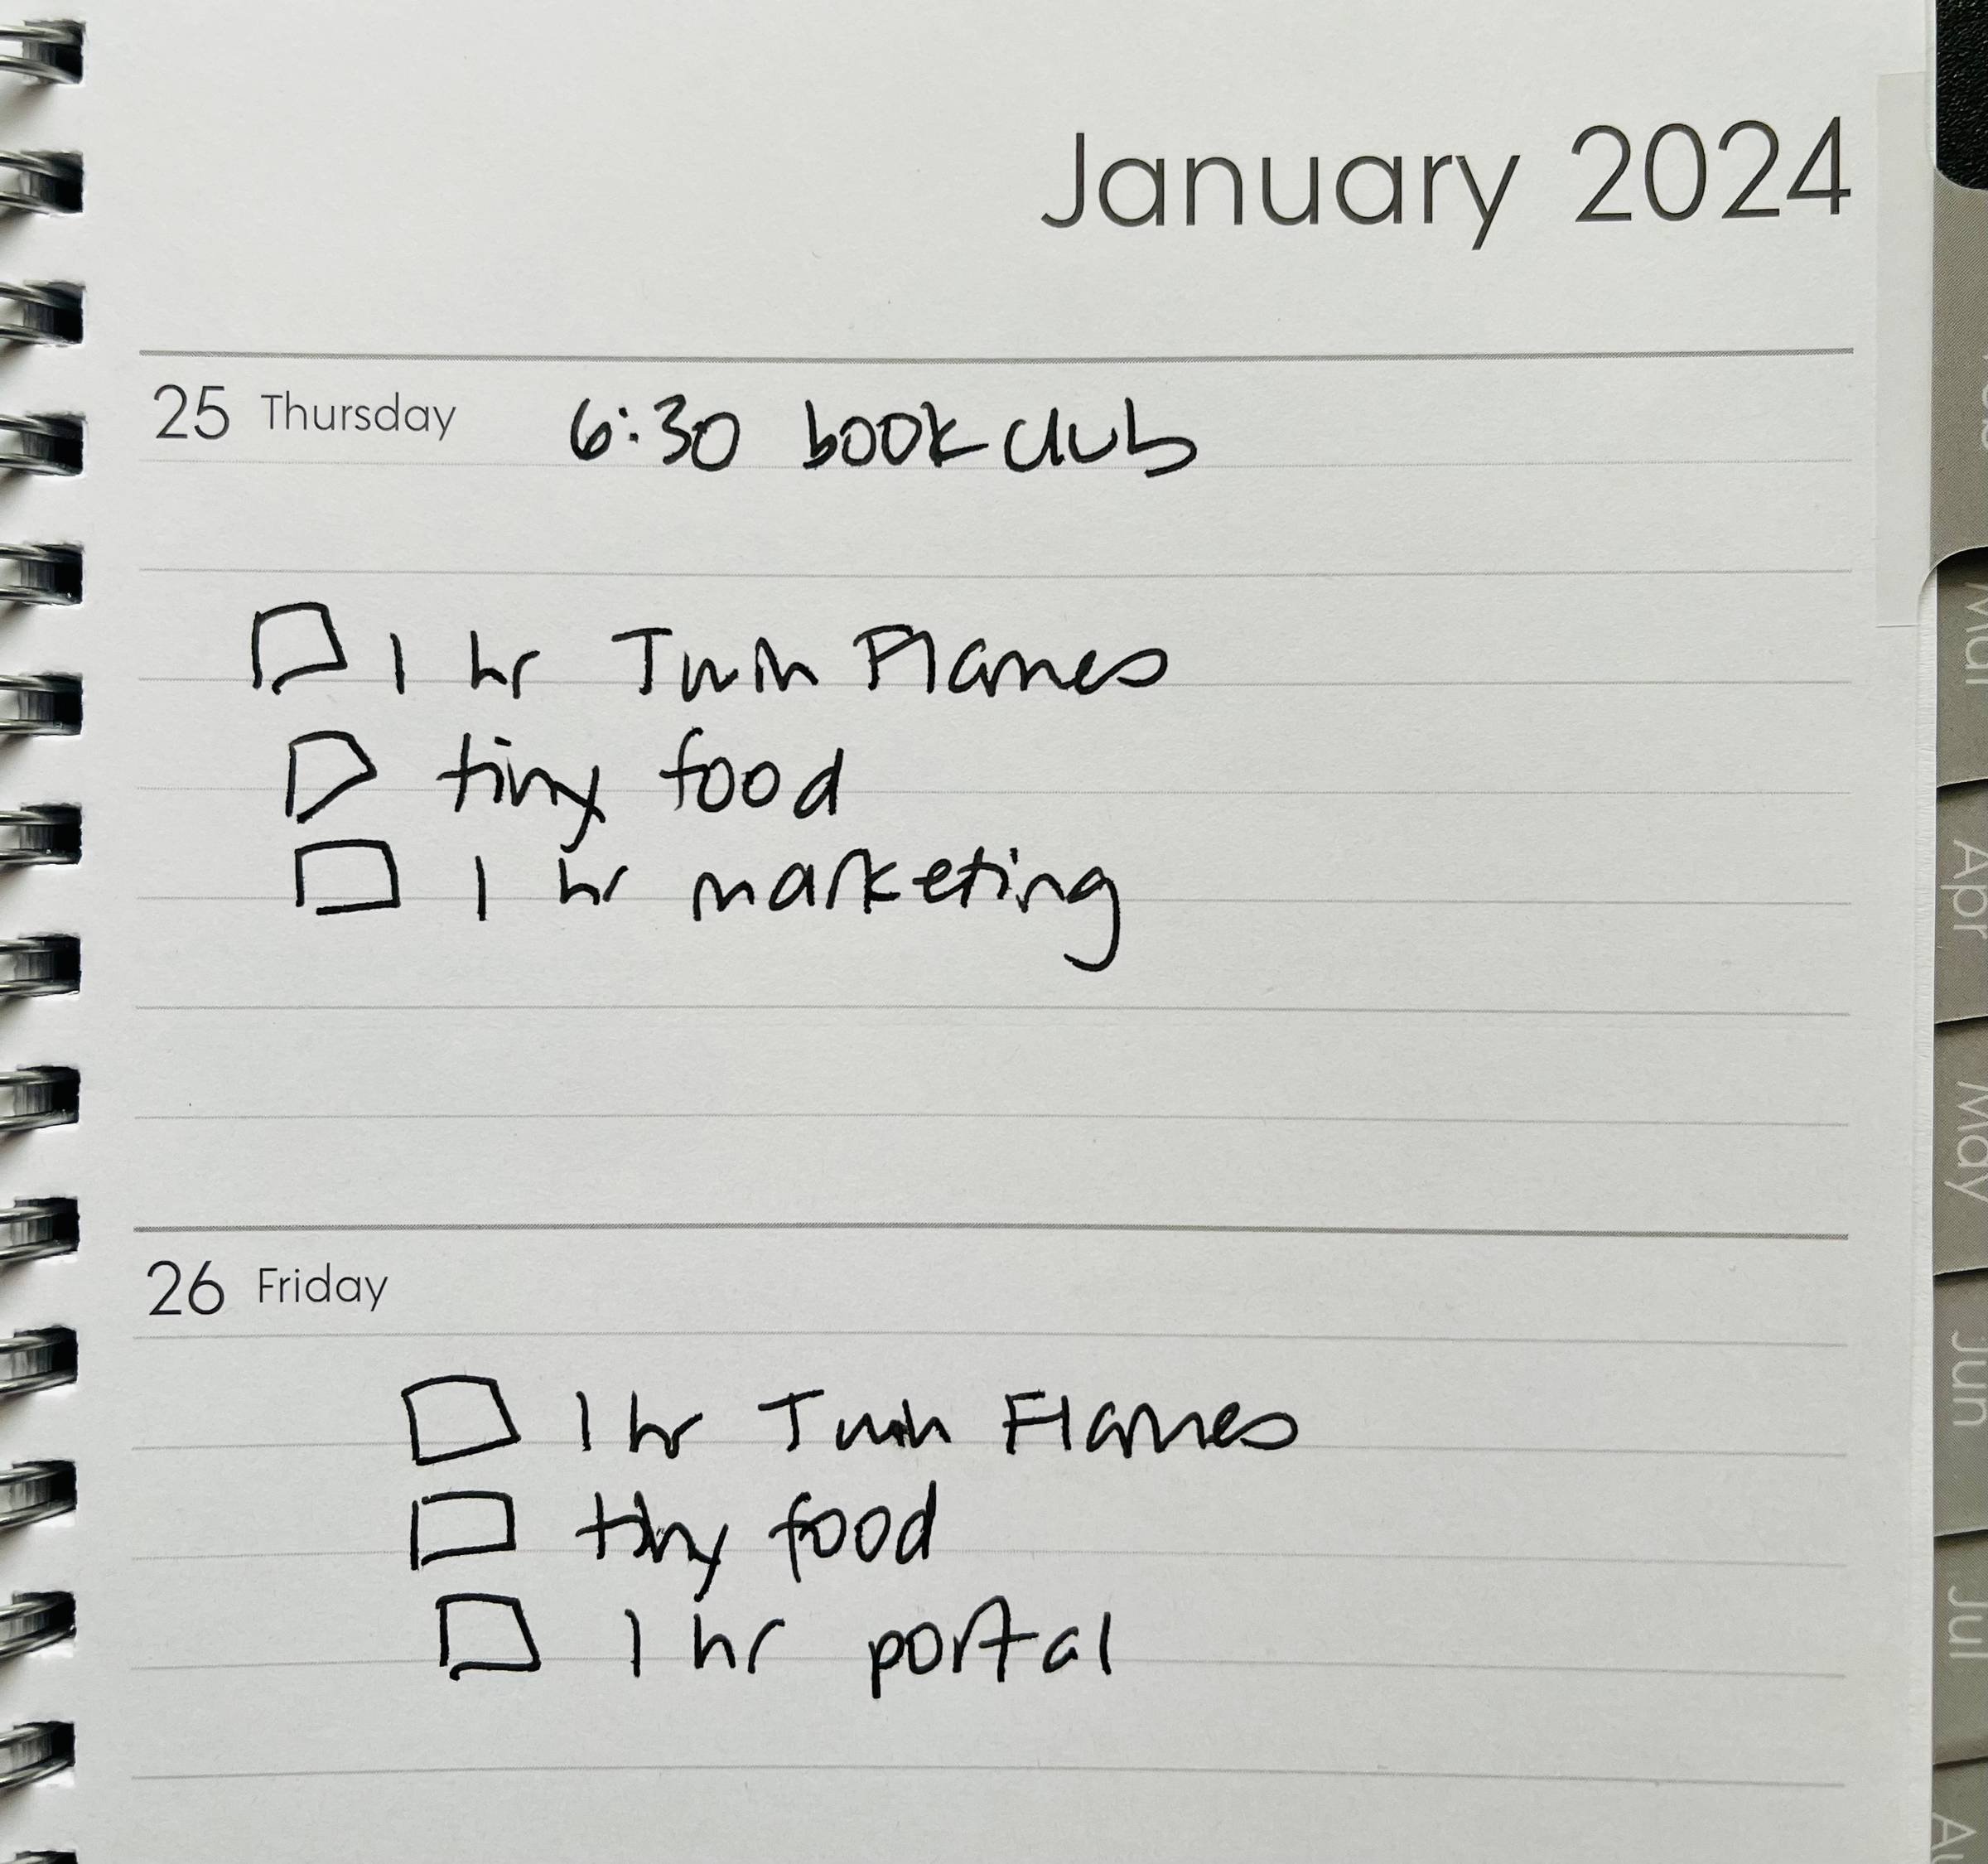 January 2024
25 Thursday 6:30 book club
1 hr Twin Flames
tiny food
1 hr marketing
26 Friday
1 hr Twin Flames
tiny food
1 hr portal
Mar
Apr
May
Jun
Jul